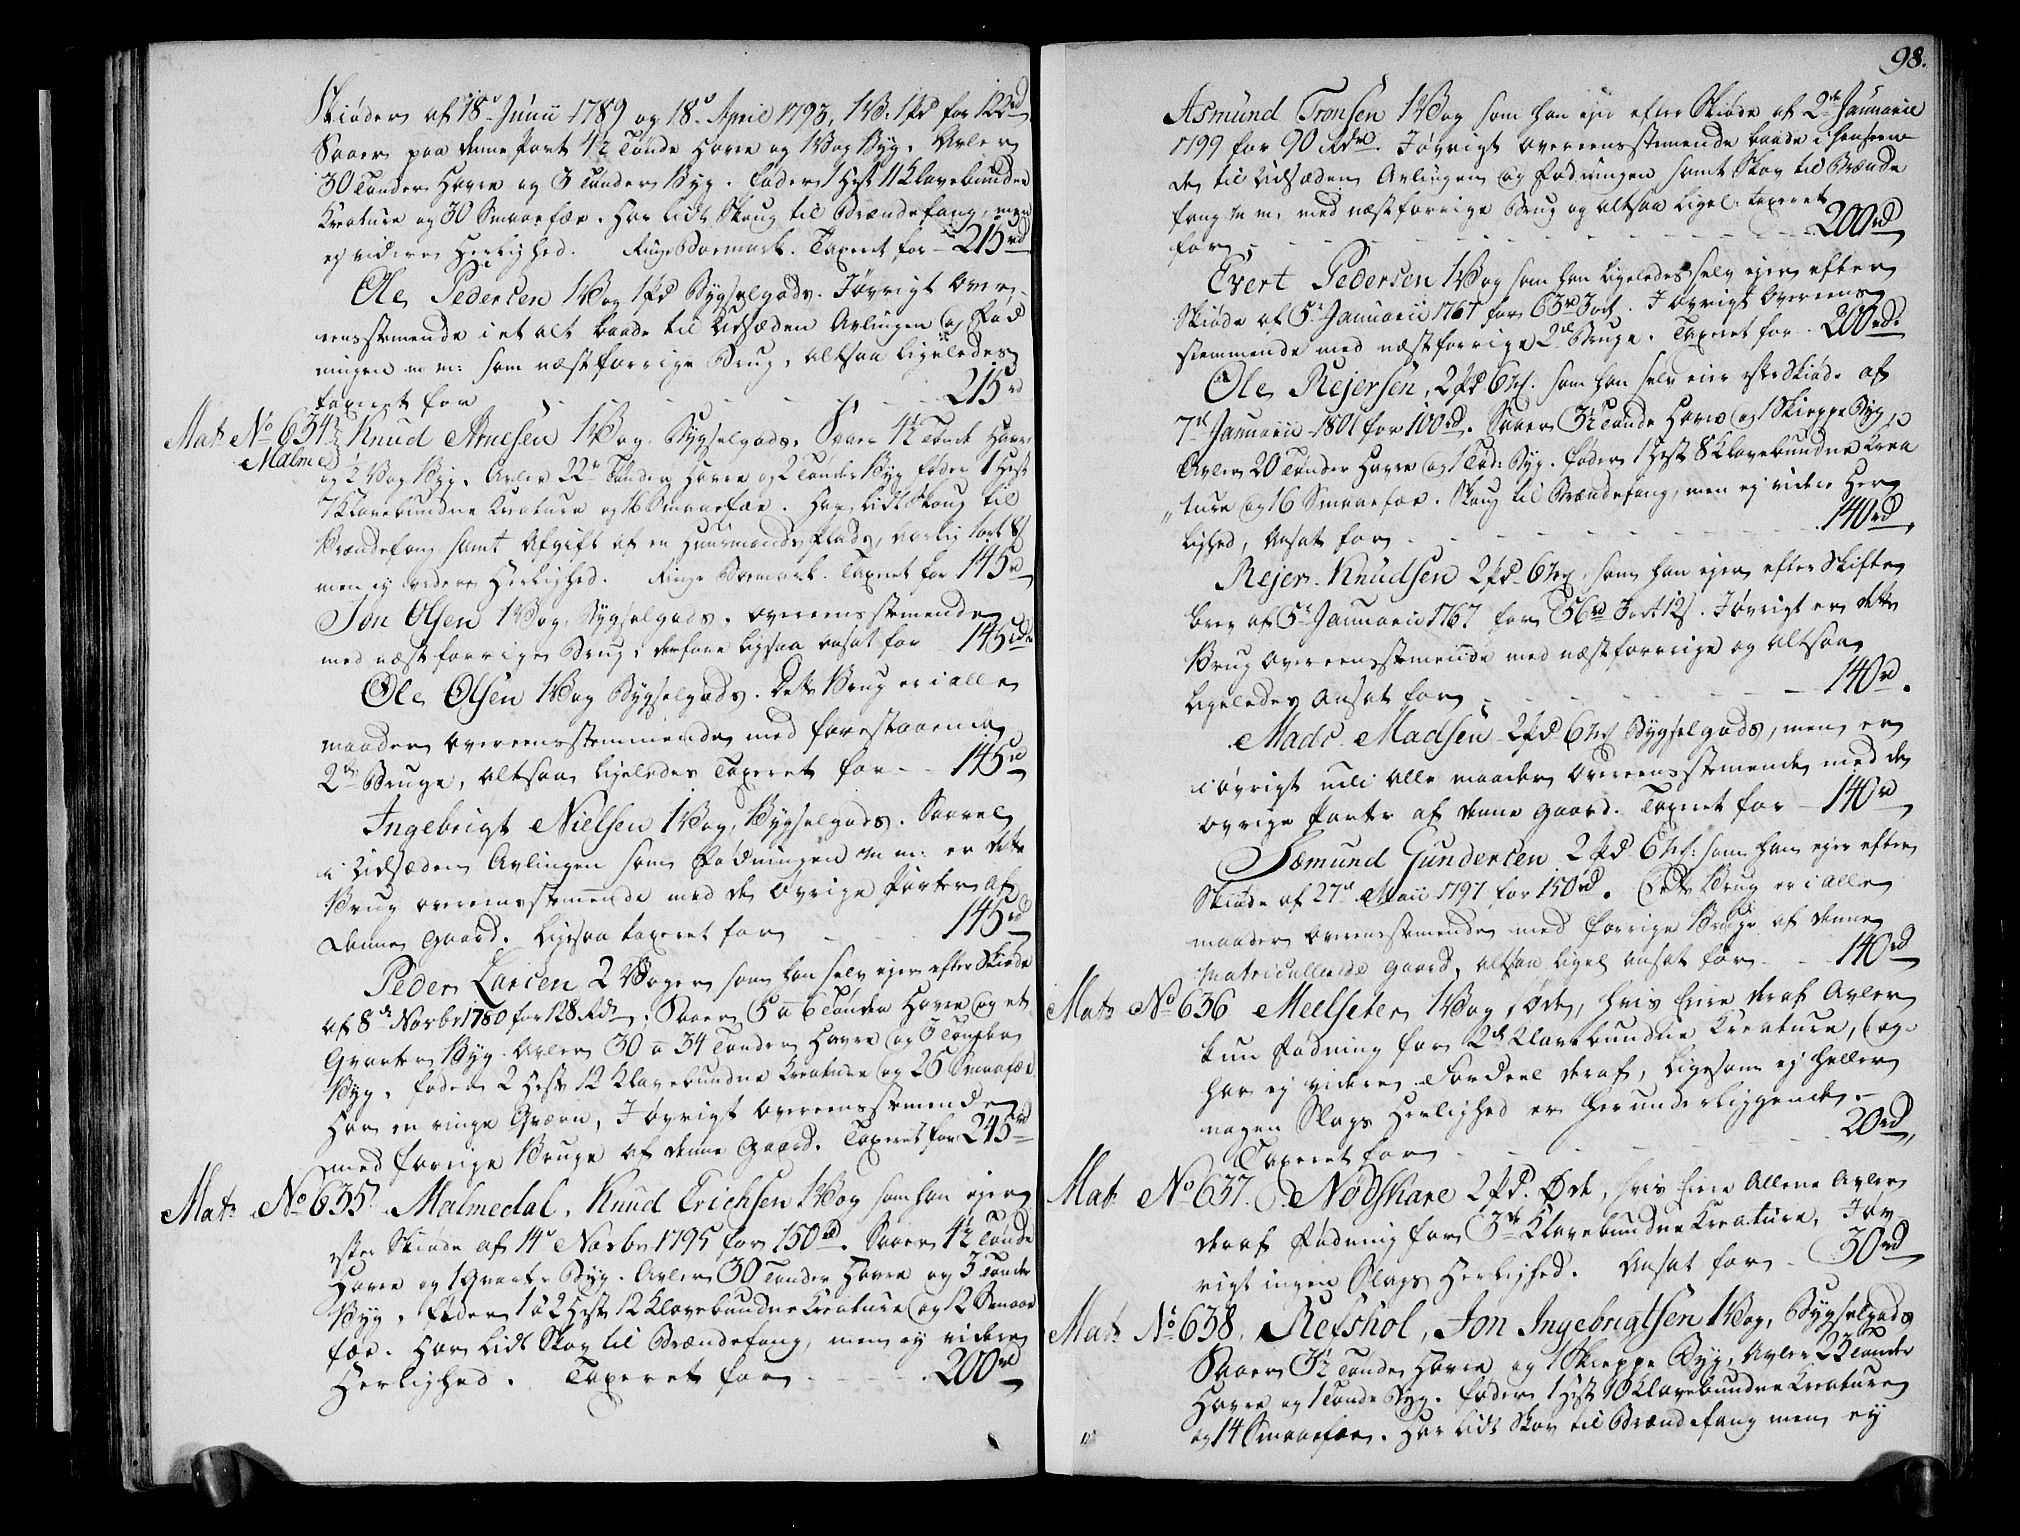 Skiøder af 18de Junii 1789 og 18de April 1793, 1 Vog 1 Pd for 122rd
Saaer paa denne Part 4½ Tønde Havre og 1 Vog Byg. Avler
30 Tønder Havre og 3 Tønder Byg. føder 1 Hest 11 Klavebundne
Kreature og 30 Smaaefæe. Har lidt Skoug til Brændefang, men
ej videre Herlighed. Ringe Boemark. Taxeret for 215rd
Ole Pedersen 1 Vog 1 Pd Bygselgods. I øvrigt over-
eensstemende i et alt baade til Udsæden Avlingen og Fød
ningen m m: som næstforrige Brug, altsaa ligeledes
taxeret for - - - - 215rd
Mat No 634 Knud Arnesen 1 Vog Bygselgods. Saaer 4½ Tønde Havre
Malme
og ½ Vog Byg. Avler 22 Tønder Havre og 2 Tønder Byg føder 1 Hest
7 Klavebundne Kreature og 16 Smaaefæe. Har lidt Skoug til
Brændefang samt Afgift af en Huusmands Plads, aarlig 1ort 8s
men ej videre Herlighed. Ringe Boemark. Taxeret for 145rd
Jon Olsen 1 Vog, Bygselgods. overeensstemende
med næst forrige Brug, derfore ligsaa ansat for 145rd
Ole Olsen 1 Vog Bygselgods. Dette Brug er i alle
maader overeensstemmende med forestaaende
2de Bruge, altsaa ligeledes Taxeret for - - 145rd
Ingebrigt Nielsen 1 Vog, Bygselgods. Saavel
i Udsæden Avlingen som Fødningen m m: er dette
Brug overeensstemende med de øvrige Parter af
denne Gaard. ligesaa taxeret for - - 145rd
Peder Larsen 2 Voger som han selv ejer efter Skiøde
af 8de Novbr 1780 for 128 Rdr, Saaer 5 a 6 Tønder Havre og et
Qvarter Byg. Avler 30 a 34 Tønder Havre og 3 Tønder
Byg. føder 2 Heste 12 Klavebundne Kreature og 25 Smaafæe
Har en ringe Qværn, I øvrigt overeensstemende
med forrige Bruge af denne Gaard. Taxeret for 245rd
Mat: No 635. Malmedal. Knud Erichsen 1 Vog som han ejer
efter Skiøde af 14de Novbr 1795 for 150rd. Saaer 4½ Tønde
Havre og 1 Qvarter Byg. Avler 30 Tønder Havre og 3 Tønder
Byg. Føder 1 a 2 Heste 12 Klavebundne Kreature og 12 Smaae
fæe. Har lidt Skov til Brændefang, men ej videre
Herlighed. Taxeret for - - - - 200rd
98.
Asmund Tronsen 1 Vog som han ejer efter Skiøde af 2de Januarii
1799 for 90 Rdr. I øvrigt overeensstemende baade i henseen
de til Udsæden Avlingen og Fødningen samt Skov til Brænde
fang m m. med næstforrige Brug og altsaa ligel: taxeret
for - - - - 200rd
Evert Pedersen 1 Vog som han ligeledes selv ejer efter
Skiøde af 5te Januarii 1767 for 63rd 3ort. I øvrigt overeens
stemmende med næstforrige 2de Bruge. Taxeret for - 200rd.
Ole Rejersen, 2 Pd 6 Mk. som han selv eier efter Skiøde af
7de Januarii 1801 for 100rd. Saaer 3½ Tønde Havre og 1 Skieppe Byg,
Avler 20 Tønder Havre og 1 Tød: Byg. føder 1 Hest 8 Klavebundne Krea
ture og 16 Smaaefæe. Skoug til Brændefang, men ej videre Her
lighed, Ansat for - - - - 140rd
Rejer Knudsen 2 Pd 6 Mk, som han ejer efter Skifte
brev af 5te Januarii 1767 for 56rd 3ort 12s. I øvrigt er dette
Brug overeensstemende med næstforrige og altsaa
ligeledes Ansat for - - - - 140rd.
Mads Madsen 2 Pd 6 Mk Bygselgods, men er
i øvrigt udi alle maader overeensstemende med de
øvrige Parte af denne Gaard. Taxeret for - 140rd
Sæmund Gundersen 2 Pd 6 Mk: som han ejer efter
Skiøde af 27de Maii 1797 for 150rd. Dette Brug er i alle
maader overeensstemende med forrige Bruge af denne
matriculerede Gaard, altsaa ligel ansat for - - 140rd
Mat: No 636 Meelseter 1 Vog, Øde, hvis Eiere deraf Avler
kun Fødning for 2de Klavebundne Kreature, og
har ej videre Fordeel deraf, ligesom ej heller
nogen Slags Herlighed er herunder liggende.
Taxeret for - - - - 20rd
Mat No 637. Nødskare 2 Pd. Øde, hvis Eiere Allene Avler
deraf Fødning for 3de Klavebundne Kreature, I øv
rigt ingen Slags Herlighed. Ansat for - 30rd
Mat: No 638. Refshol, Jon Ingebrigtsen 1 Vog, Bygselgods
Saaer 3½ Tønde Havre og 1 Skieppe Byg, Avler 23 Tønder
Havre og 1 Tønde Byg. føder 1 Hest 10 Klavebundne Kreature
og 14 Smaaefæe. Har lidt Skov til Brændefang men ej